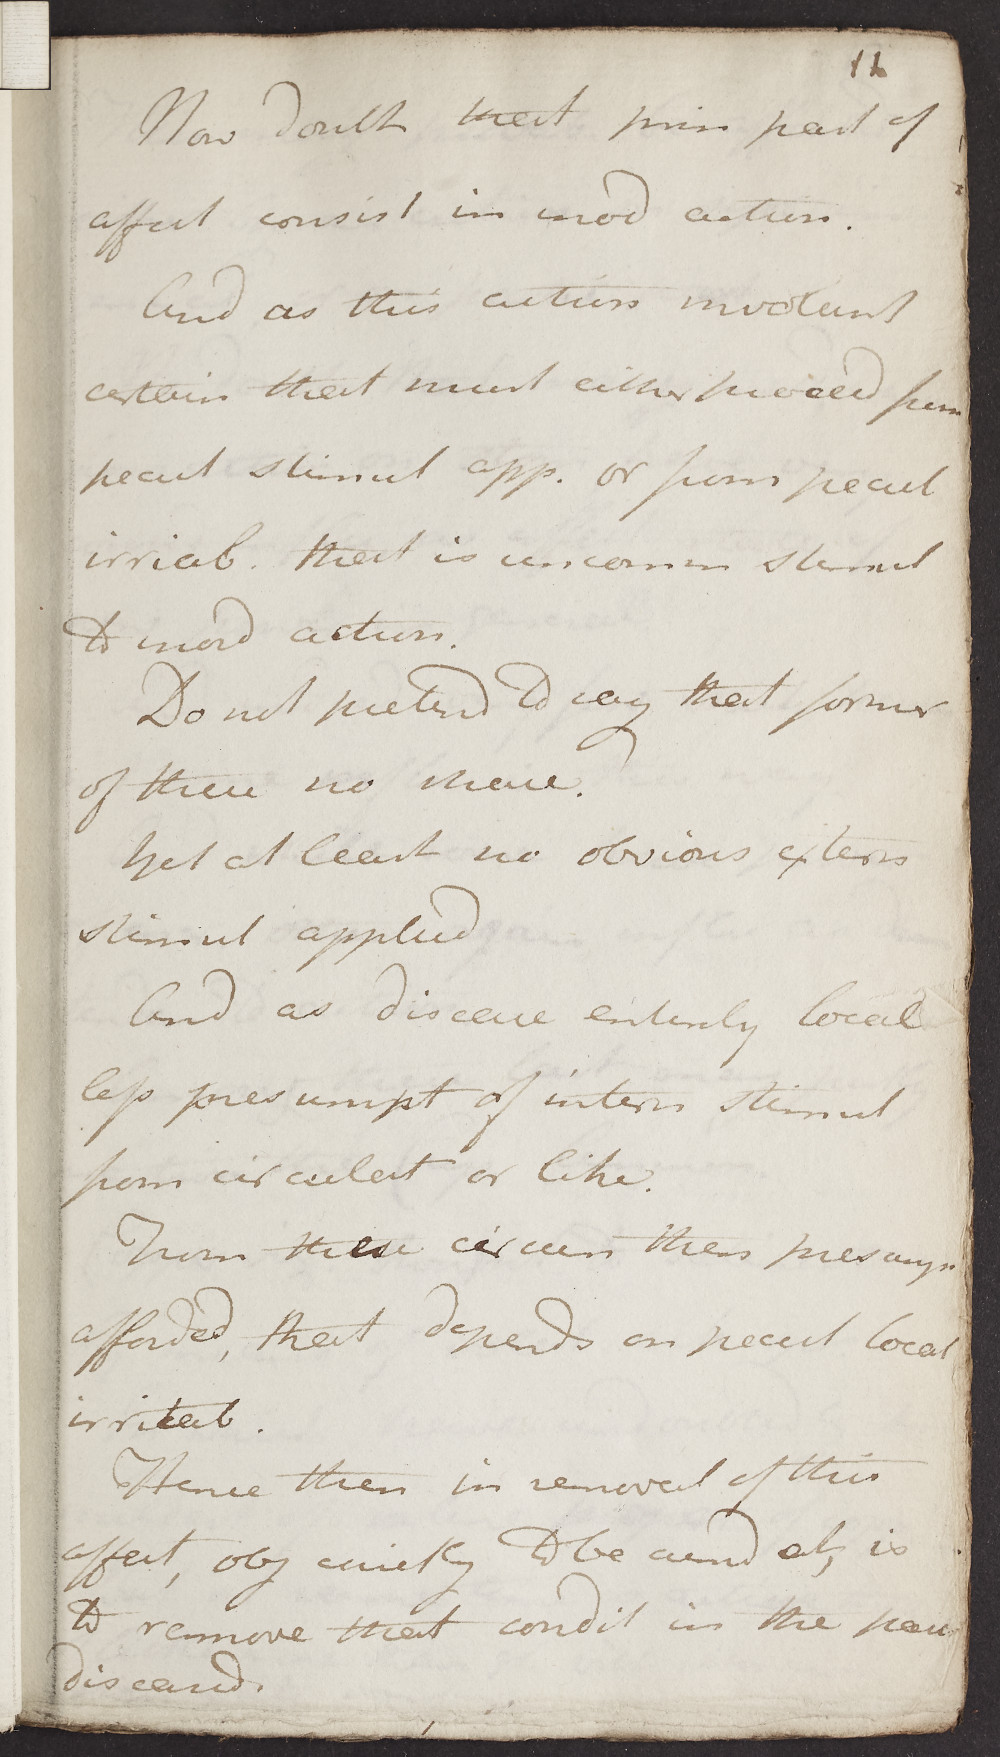 16
Now doubt that prin part of
affect consist in mod action.
And as this action involunt
certain that must either proceed from
pecul stimul app. or from pecul
irriab. that is uncomm stimul
to mord action.
Do not pretend to say that former
of these no share.
Yet at least no obvious extern
stimul applied
And as disease entirely local
less presumpt of intern stimul
from circulat or like.
From these circum then presump
afforded, that depends on pecul local
irritab.
Hence then in removal of this
affect, obj chiefly to be aimd at, is
to remove that condit in the
diseased.